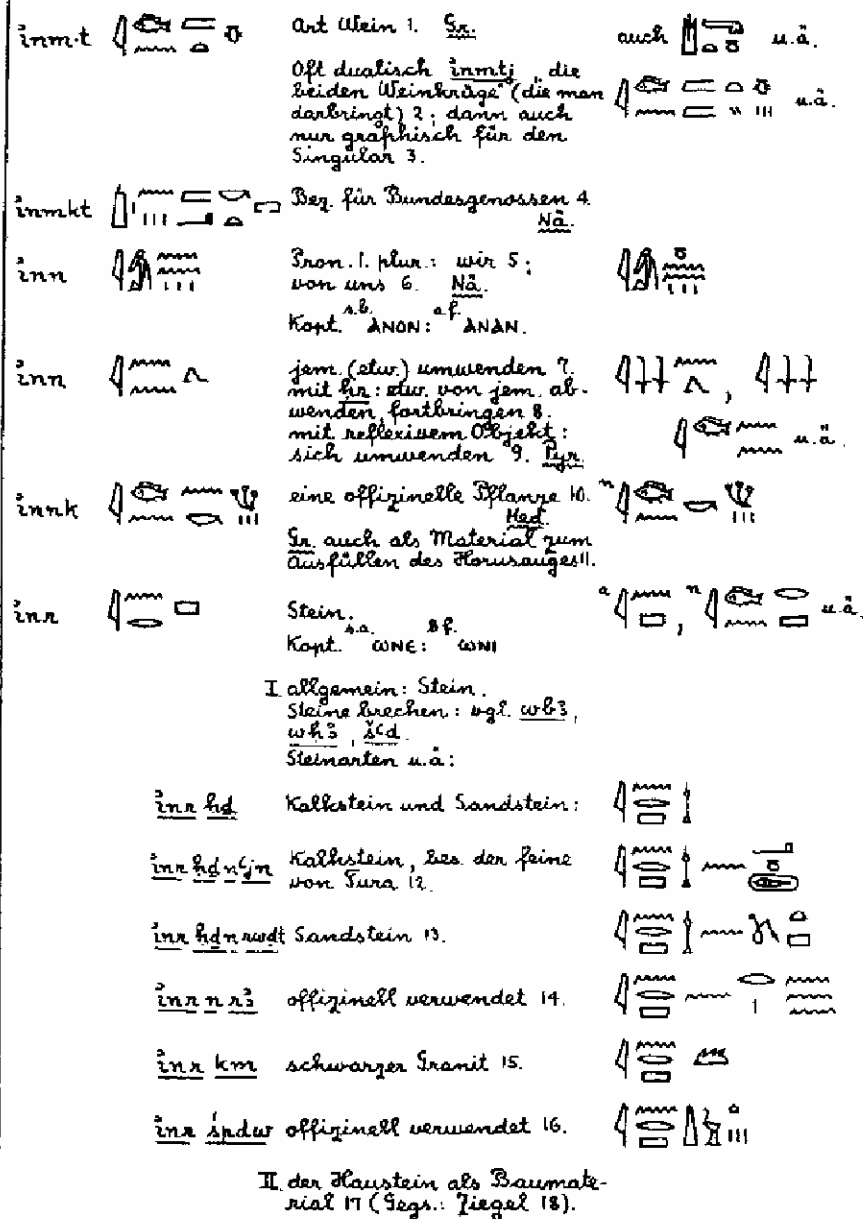 ỉnm·t Art Wein 1. Gr. auch u.ä.
Oft dualisch ỉnmtj „die
beiden Weinkrüge“ (die man
darbringt) 2; dann auch u.ä.
nur graphisch für den
Singular 3.
ỉnmkt Bez. für Bundesgenossen 4.
Nä.
ỉnn Pron. 1. plur.: wir 5;
von uns 6. Nä.
Kopt. s.b. ⲀⲚⲞⲚ: a.f. ⲀⲚⲀⲚ.
ỉnn jem. (etw.) umwenden 7.
mit ḥr: etw. von jem. ab-
wenden, fortbringen 8.
mit reflexivem Objekt: u.ä.
sich umwenden 9. Pyr.
ỉnnk eine offizinelle Pflanze 10. n
Med.
Gr. auch als Material zum
Ausfüllen des Horusauges 11.
ỉnr Stein. a , n u.ä.
Kopt. s.a. ⲰⲚⲈ: B f. ⲰⲚⲒ
I allgemein: Stein.
Steine brechen: vgl. wbꜣ,
whꜣ, šꜥd.
Steinarten u.ä:
ỉnr ḥḏ Kalkstein und Sandstein:
ỉnr ḥḏ n ꜥjn Kalkstein, bes. der feine
von Tura 12.
ỉnr ḥḏ n rwḏt Sandstein 13.
ỉnr n rꜣ offizinell verwendet 14.
ỉnr km schwarzer Granit 15.
ỉnr śpdw offizinell verwendet 16.
II. der Haustein als Baumate-
rial 17 (Gegs.: Ziegel 18).